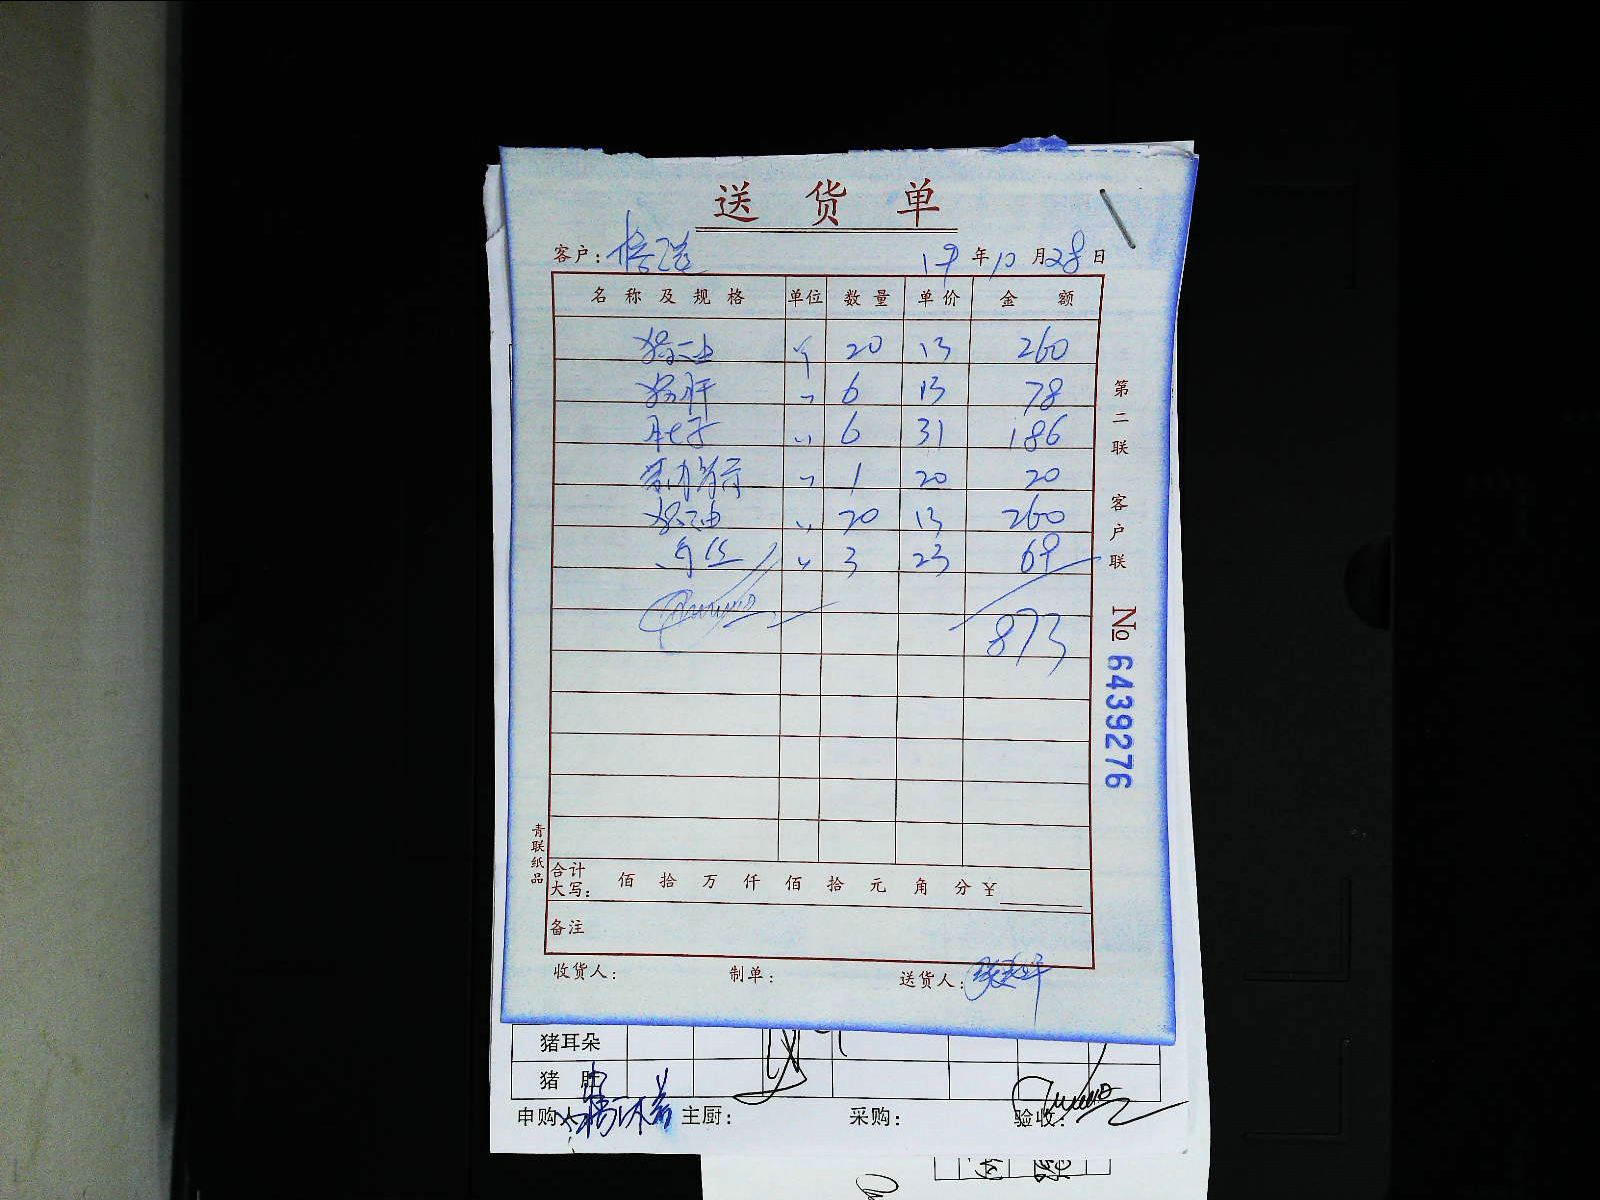 送货单
客户: 19年10月28日
名称及规格 单位 数量 单价 金额
个 20 13 260
猪肝 〃 6 13 78
肚子 〃 6 31 186
〃 1 20 20
〃 20 13 260
〃 3 23 69
873
合计大写: 佰 拾 万 仟 佰 拾 元 角 分 ¥
备注
收货人: 制单: 送货人:
第二联 客户联
№ 6439276
青联纸品
猪耳朵
猪肚
申购人 主厨: 采购: 验收: